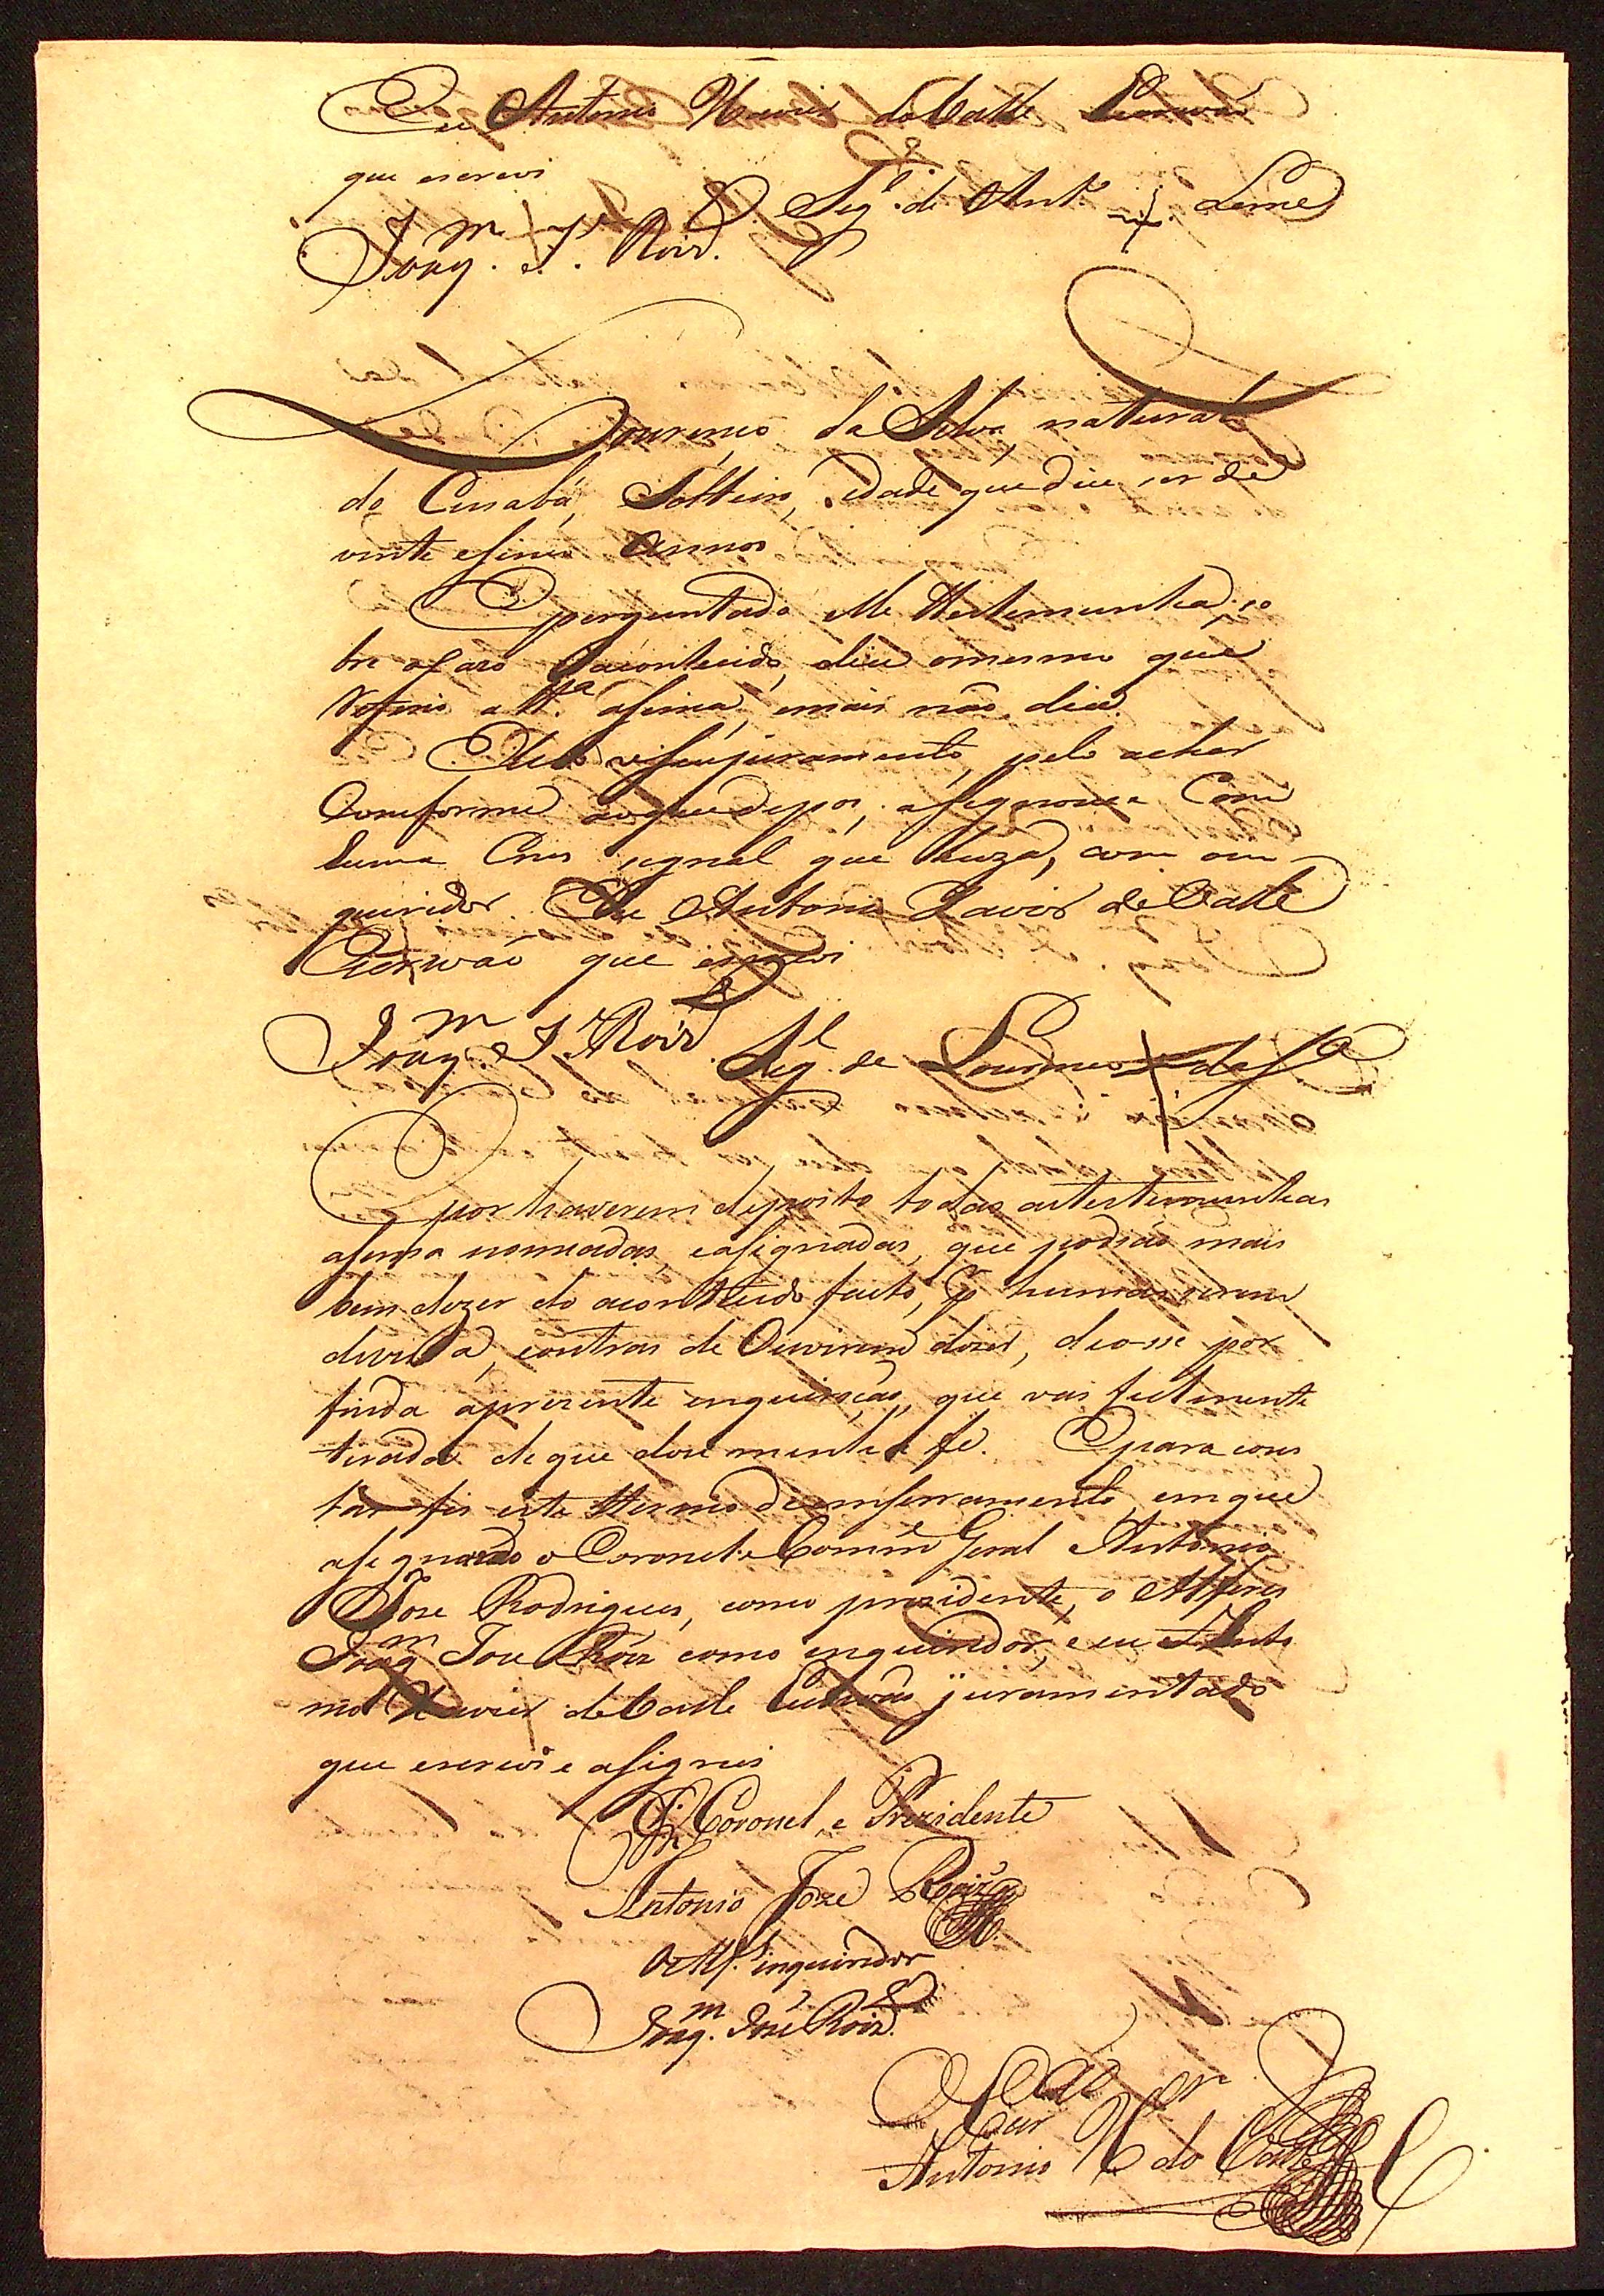 Eu Antonio Xavier do Valle Escrivaõ
que escrevi
Sig.l de Ant.o + Leme
Joaq.m J.e Roiz.
Lourenço da Silva, natural
do Cuiabá, Solteiro, idade que dice ser de
vinte e sinco annos
E perguntado elle Testemunha, so
bre o cazo acontecido, dice o mesmo que
a tt.a asima, e mais naõ dice.
E lido seu juramento, pelo achar
Comforme ao que depos, a signou-se Com
huma Crus signal que huza, com o in
quiridor. Eu Antonio Xavier do Valle
Escrivaõ que escrevi
Joaq.m J.e Roiz.
Sig.l de Lourenço + da S.a
E por haverem deposto todas as testemunhas
asima nomeadas, e asignadas, que podiaõ mais
bem dizer do acontecido facto, humas serem
de vista, e outras de Ouvirem dizer, deo-se por
finda a prezente inquiriçaõ, que vai fielmente
tirada de que dou minha fé. E para cons
tar fis este Termo de emserramento, em que
asignaraõ o Coronel e Comm.e Geral Antonio
Joze Rodrigues, como prezidente, o Alferes
Joaq.m Joze Roiz como inquiridor, e eu Anto
nio Xavier do Valle Escrivaõ juramentado
que escrevi e asignei
Coronel, e Prezidente
Antonio Joze Roiz
O Alf.s inquiridor
Joaq.m José Roiz.
O Escrivaõ
Antonio X.er do Valle